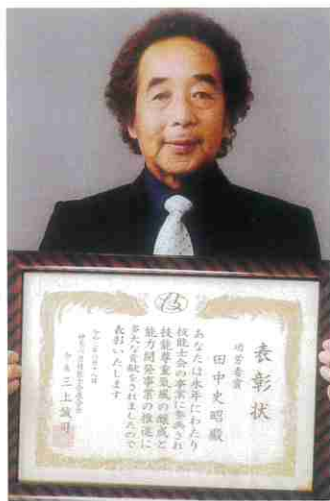 表彰状
功労者賞
田中史昭殿
あなたは永年にわたり
技能士会の事業に参画され
技能尊重気風の醸成と
能力開発事業の推進に
多大な貢献をされましたので
表彰いたします
会長 三上誠司